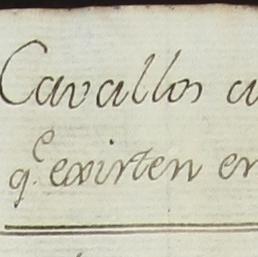 Cavallos
q.e existen en